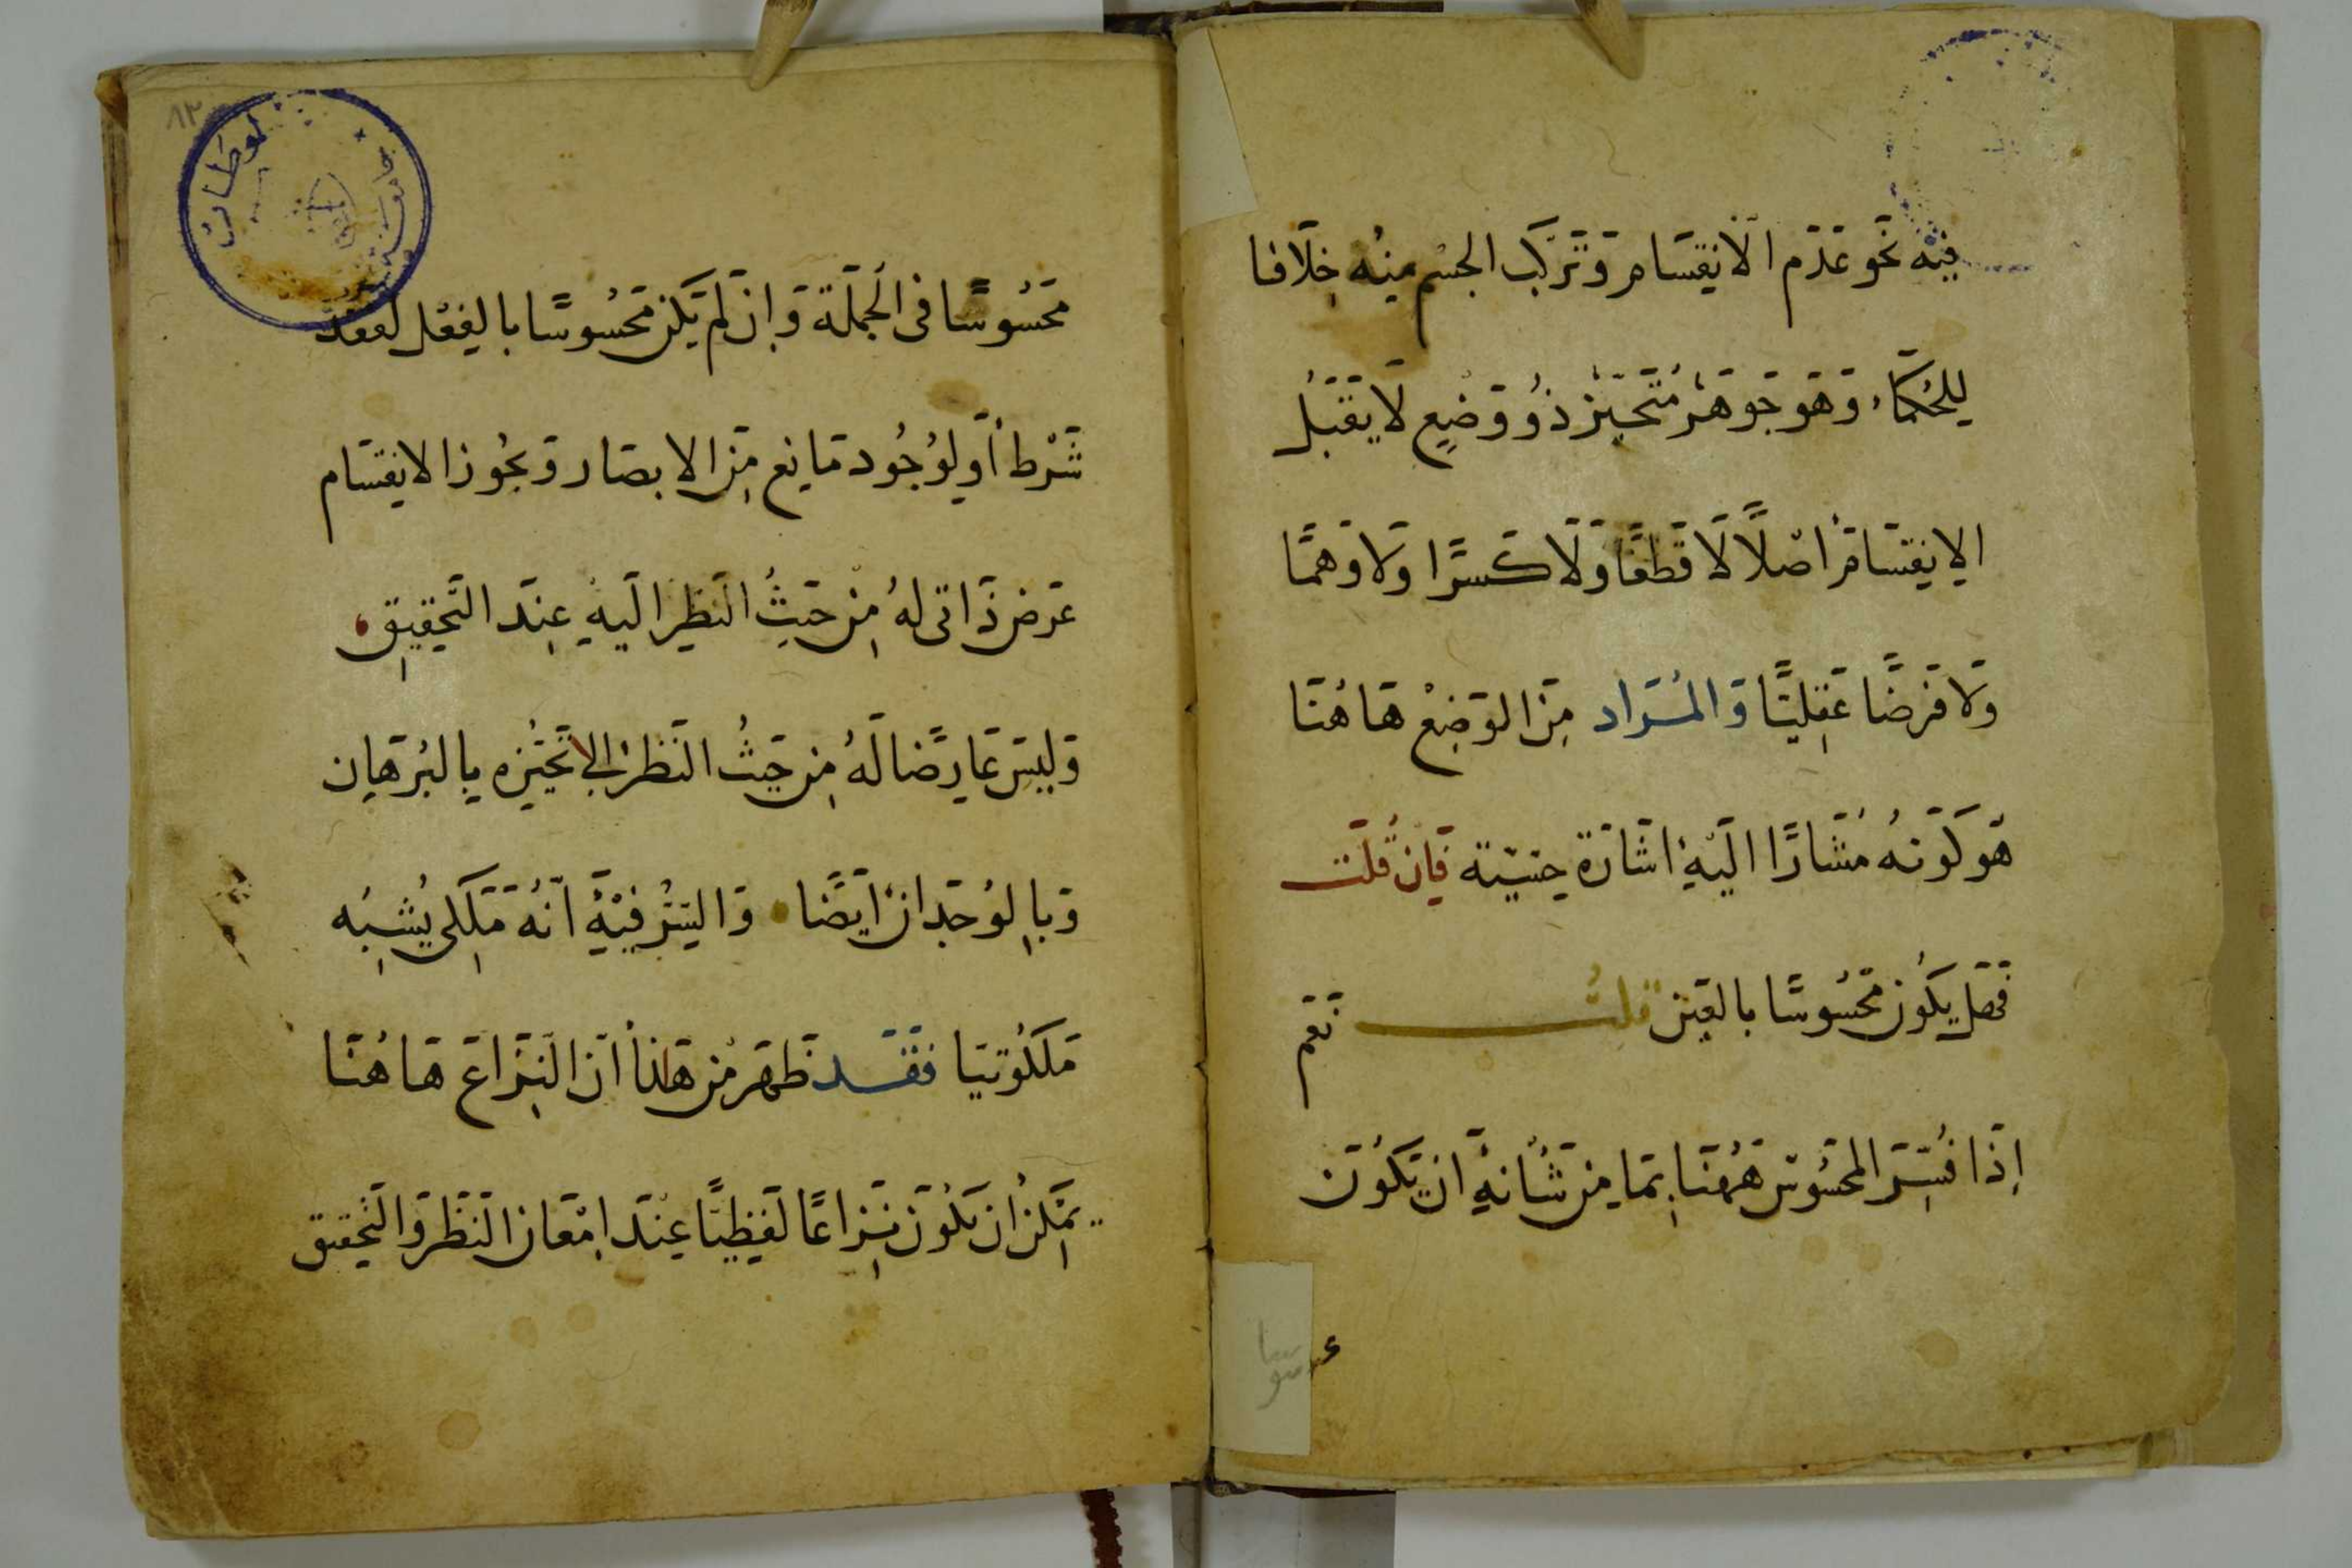 فِيْهِ نَحْوَ عَدَمِ الْاَنْقِسَامِ وَتَرَكَّبَ الجِسْمِ مِنْهُ خِلَافًا
لِلْحُكَمَاءِ وَهَوَ جَوْهَرٌ مُتَحَيِّزٌ ذُو وَضْعٍ لَا يَقْبَلُ
الاِنْقِسَامَ اَصْلاً لَا قَطْعًا وَلَا كَسْرًا وَلَا وَهْمًا
وَلَا فَرْضًا عَقْلِيًّا وَالْمُرَاد مِنَ الوَضْعِ هَاهُنَا
هَوَ كَوْنهُ مُشَارًا الَيْهِ اشَارَة حِسِّيَّة فَإِنْ قُلْتَ
فَهَل يَكُون مَحْسُوسًا بالعَيْن قلتُ نَعَم
اِذَا فُسِّرَ المحْسُوس هَهُنَا بِمَا مِنْ شَانهِ ان يَكُوْنَ
محَسُوسًا فى الجُمْلَة وَاِنْ لَمْ يَكن مَحْسُوسًا بالفِعْل لفقد
شَرْط أوَ لِوُجُود مَانِع مِنَ الابصَار وَيَجُوز الانقِسَام
عَرَض ذَاتى لهُ مِنْ حَيْثُ النَظِر الَيهِ عِندَ التَحْقِيقِ
وَلَيسَ عَارِضًا لَهُ مِن حَيثُ النَظْر الى تَحَيُّزِه بِالبُرْهَان
وَبِالوُجْدَان اَيْضًا وَالسِّرُّ فِيْهِ اَنّهُ مَلَكى يُشْبِهُ
مَلَكُوْتيَا فَقَد ظَهَرَ مِن هَذا اَنّ النِزَاعَ هَاهُنَا
يمكِن ان يَكُوْنَ نِزَاعًا لَفْظِيًّا عِنْدَ اِمْعَان النَظَر وَالتَحْقيق
٨٢